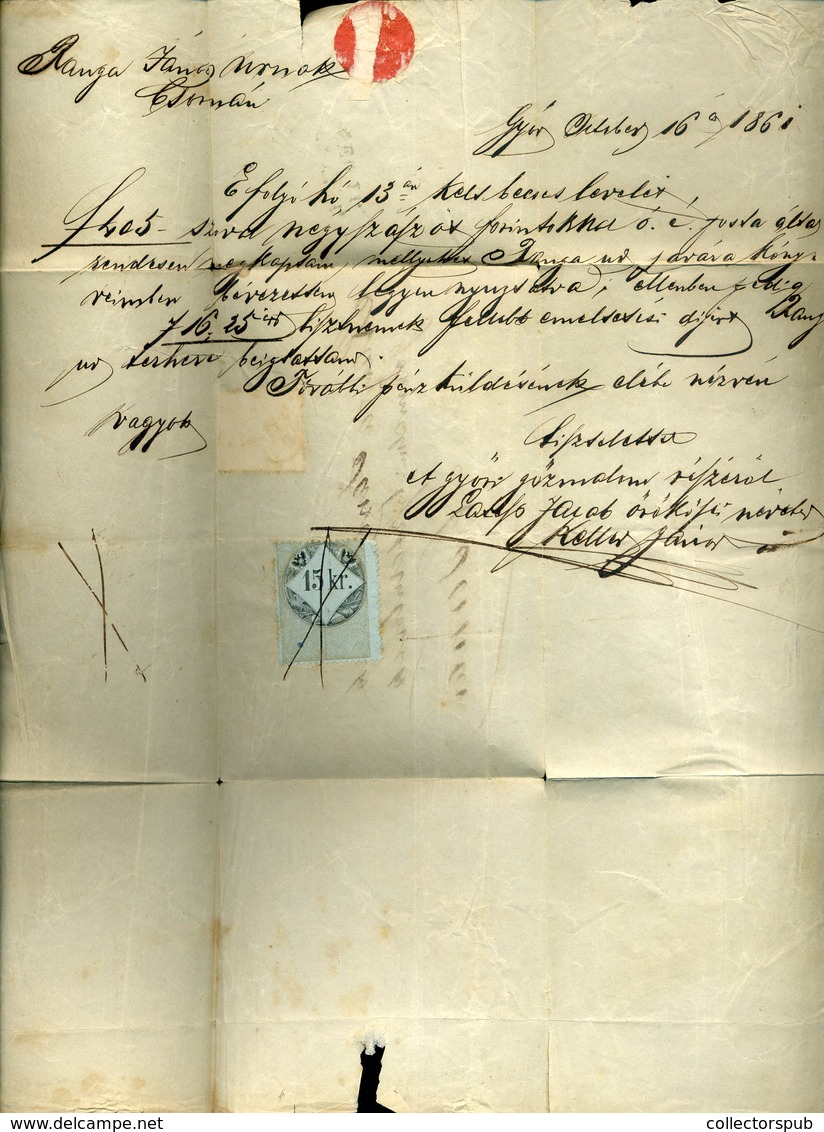 Ranga János úrnak
Csornán
Győr October 16 á 1861
E folyó hó 13 án kelt becses levelét
f 405 – szava négyszázöt forintokkal ó. é. posta által
rendesen megkaptam, mellyeket Ranga ur javára köny-
veimben bévezettem legyen nyugodva; ellenben pedig
f 16, 25 lisztnemek fellebb emeltetési dijért Ranga
ur terhére beigtattam.
További pénz küldésének elébe nézvén
vagyok
tisztelettel
A győri gőzmalom részéről
Jacob örökösei nevében
Keller János
15 kr.
delcampe.net
collectorspub